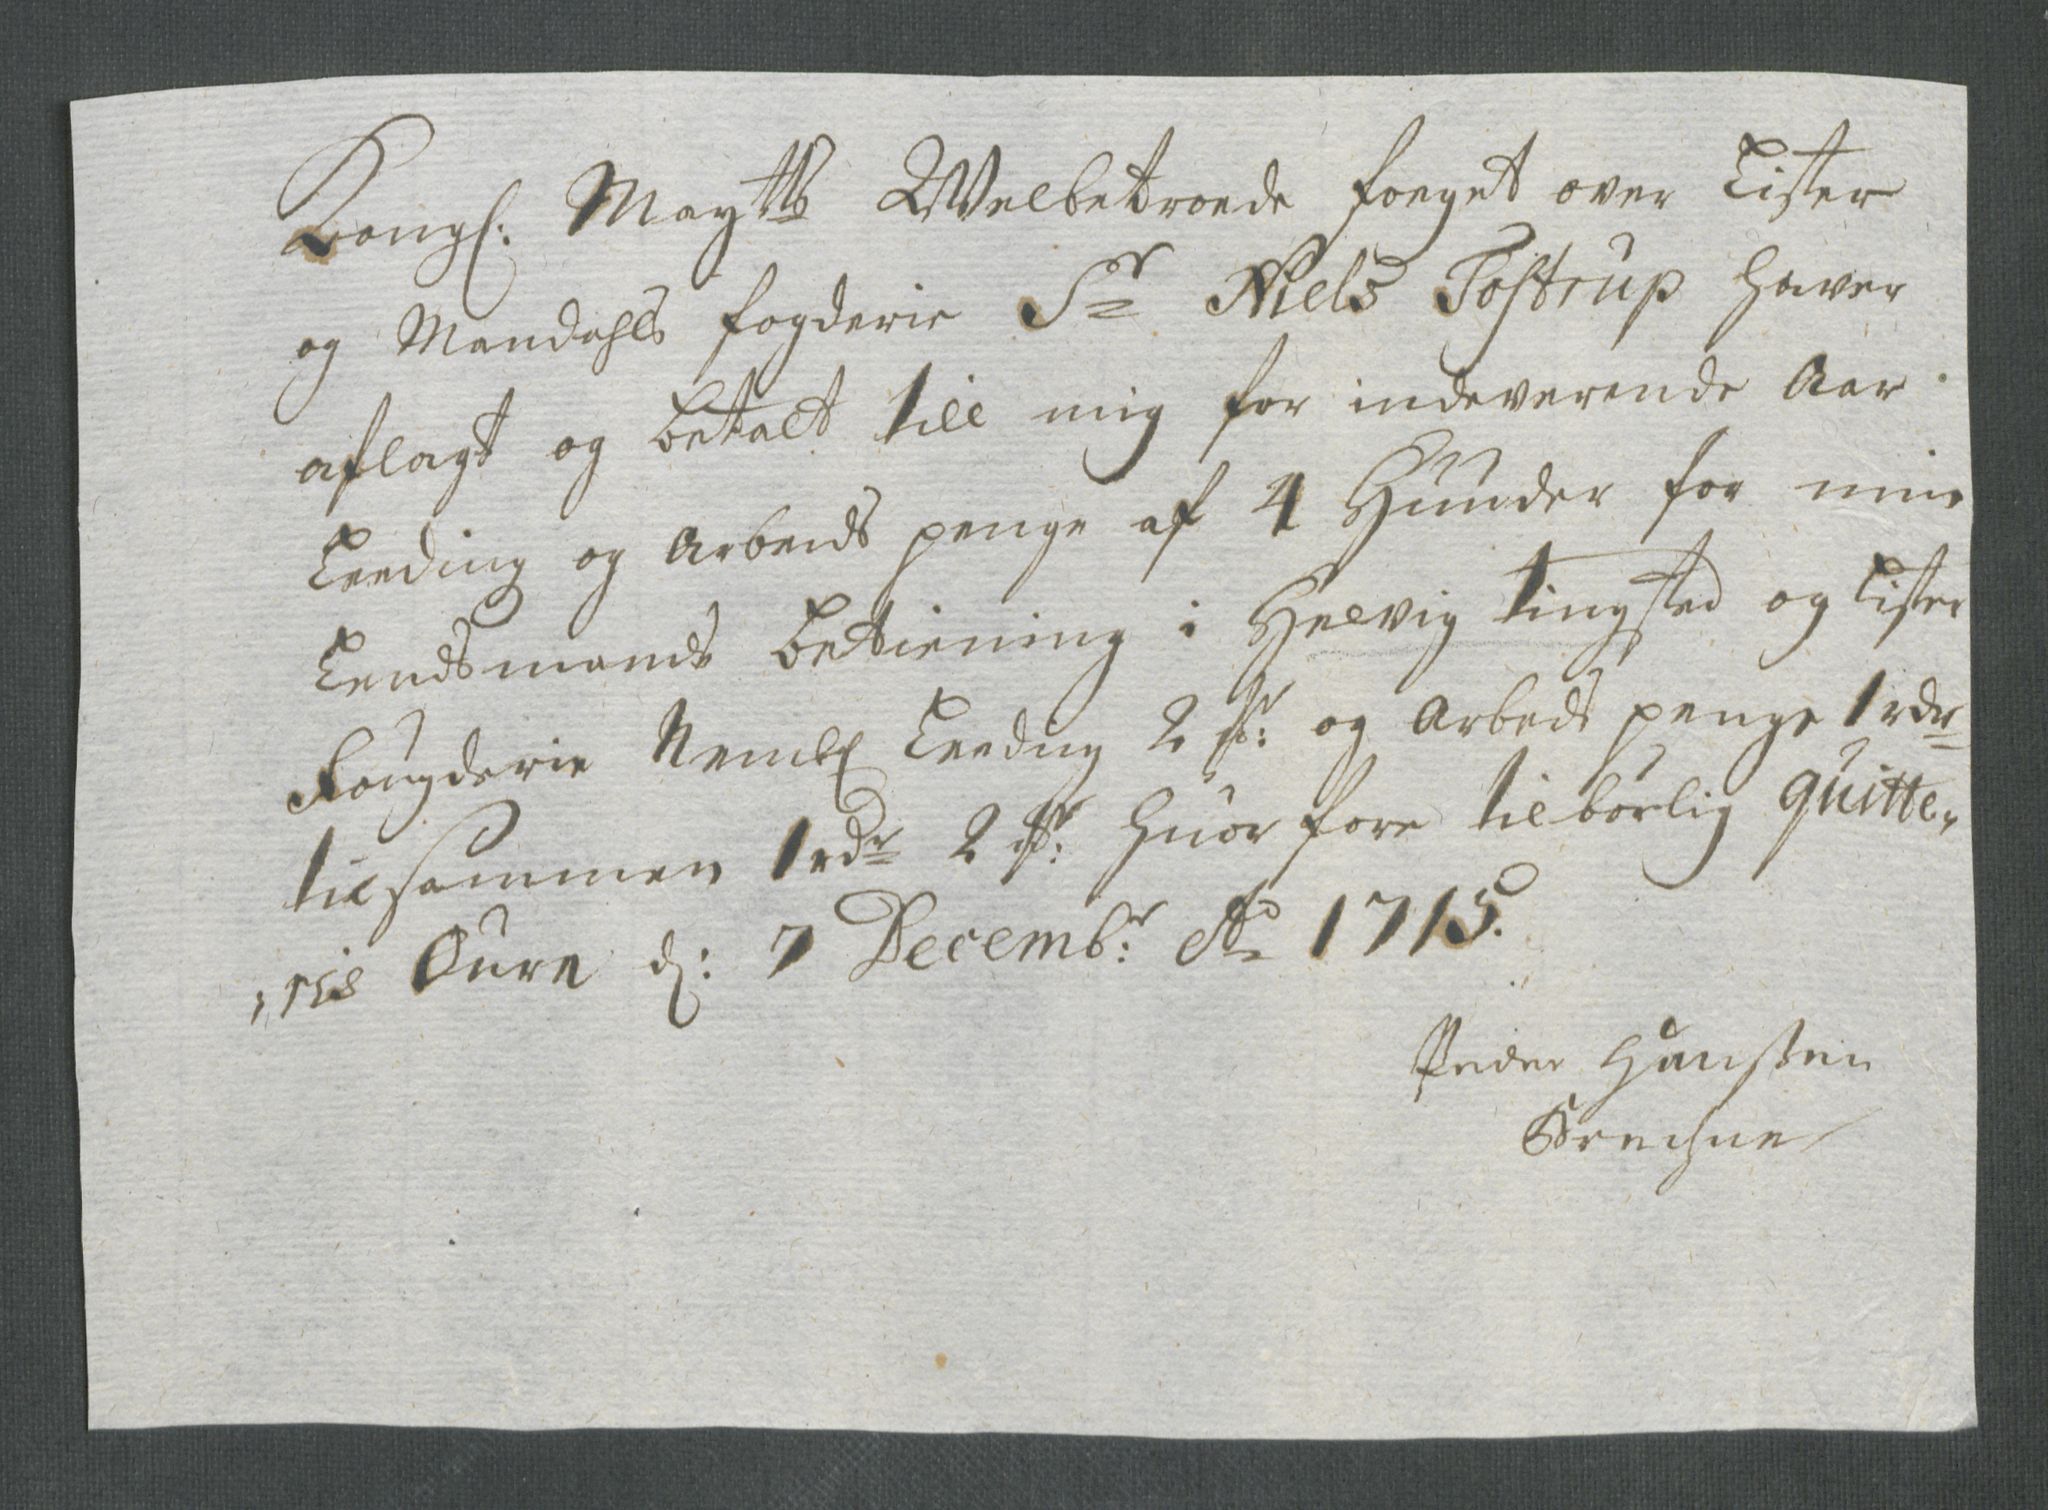 Kongl: Maytts Welbetroede foeget over Lister
og Mandahls fogderie Sr Niels Tostrup haver
aflagt og betalt till mig for indeverende Aar
Leeding og Arbeids penge af 4 Hunder for min
Lendsmands betiening i Helvig tingsted og Lister
Fougderie Nembl Leedng 2 ß: og Arbeds penge 1 rdr
tilsammen 1 rdr 2 ß: huorfore tilbørlig quitte-
:ris Øure d: 7 Decembr: Ao 1715.
Peder Hanssen